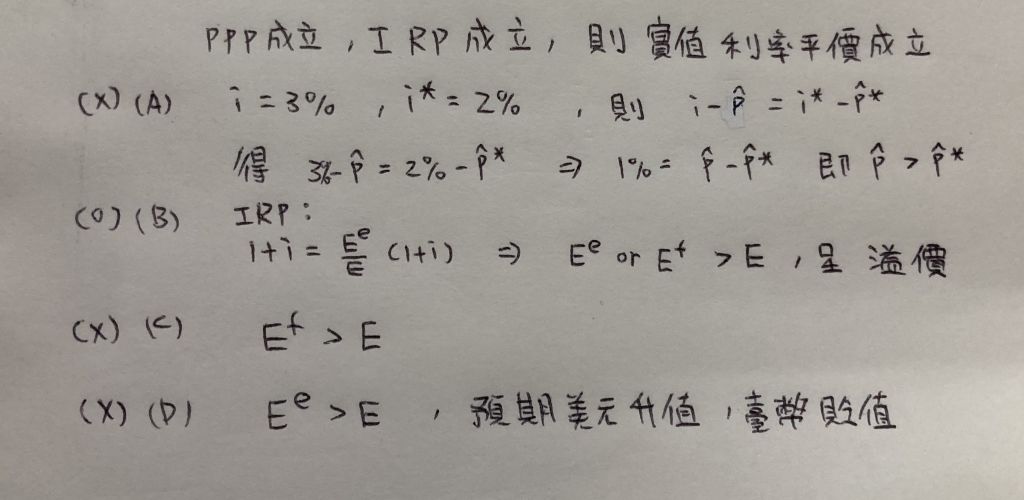 PPP成立，IRP成立，則實值利率平價成立
(X) (A) i = 3% , i* = 2% , 則 i - p̂ = i* - p̂*
得 3% - p̂ = 2% - p̂* ⇒ 1% = p̂ - p̂* 即 p̂ > p̂*
(O) (B) IRP:
1+i = E^e/E (1+i) ⇒ E^e or E^f > E , 呈溢價
(X) (C) E^f > E
(X) (D) E^e > E , 預期美元升值，臺幣貶值